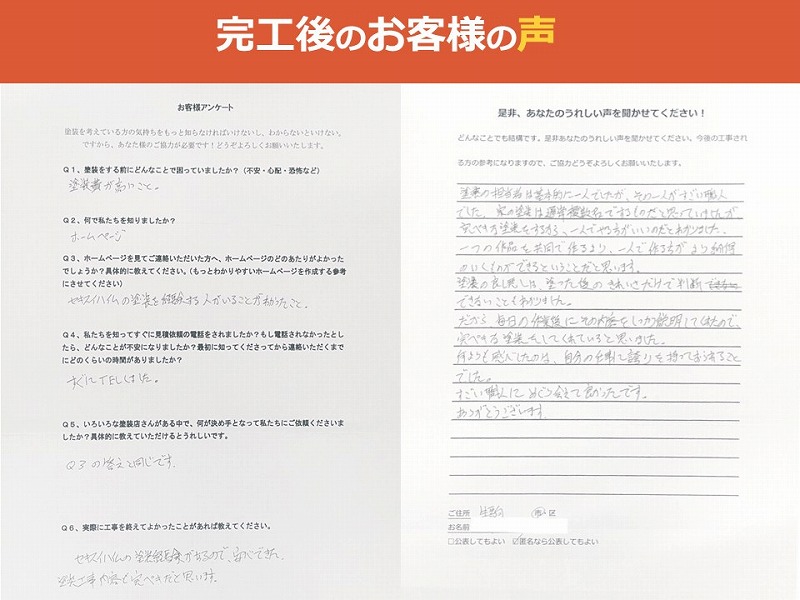 完工後のお客様の声
お客様アンケート
塗装を考えている方の気持ちをもっと知らなければいけないし、わからないといけない。
ですから、あなた様のご協力が必要です！どうぞよろしくお願いいたします。
Q1、塗装をする前にどんなことで困っていましたか？（不安・心配・恐怖など）
塗装費が高いこと。
Q2、何で私たちを知りましたか？
ホームページ
Q3、ホームページを見てご連絡いただいた方へ、ホームページのどのあたりがよかった
でしょうか？具体的に教えてください。（もっとわかりやすいホームページを作成する参考
にさせてください）
セキスイハイムの塗装を経験する人がいることがわかったこと。
Q4、私たちを知ってすぐに見積依頼の電話をされましたか？もし電話されなかったとし
たら、どんなことが不安になりましたか？最初に知ってくださってから連絡いただくまで
にどのくらいの時間がありましたか？
すぐにTELしました。
Q5、いろいろな塗装店さんがある中で、何が決め手となって私たちにご依頼くださいま
したか？具体的に教えていただけるとうれしいです。
Q3の答えと同じです。
Q6、実際に工事を終えてよかったことがあれば教えてください。
セキスイハイムの塗装経験があるので、安心できた。
塗装工事内容も完ぺきだと思います。
是非、あなたのうれしい声を聞かせてください！
どんなことでも結構です。是非あなたのうれしい声を聞かせてください。今後の工事され
る方の参考になりますので、ご協力どうぞよろしくお願いいたします。
塗装の担当者は基本的に一人でしたが、その一人がすごい職人
でした。家の塗装は通常複数名でするものだと思っていましたが
完ぺきな塗装をするなら、一人でやる方がいいのだとわかりました。
一つの作品を共同で作るより、一人で作る方がより納得
のいくものができるということだと思います。
塗装の良し悪しは、塗った後のきれいさだけで判断
できないこともわかりました。
だから毎日の作業後にその内容をしっかり説明してくれたので、
完ぺきな塗装をしてくれていると思いました。
何よりも感じたのは、自分の仕事に誇りを持っておられること
でした。
すごい職人にめぐり会えて良かったです。
ありがとうございます。
ご住所 生駒 市 区
お名前
□公表してもよい ☑匿名なら公表してもよい